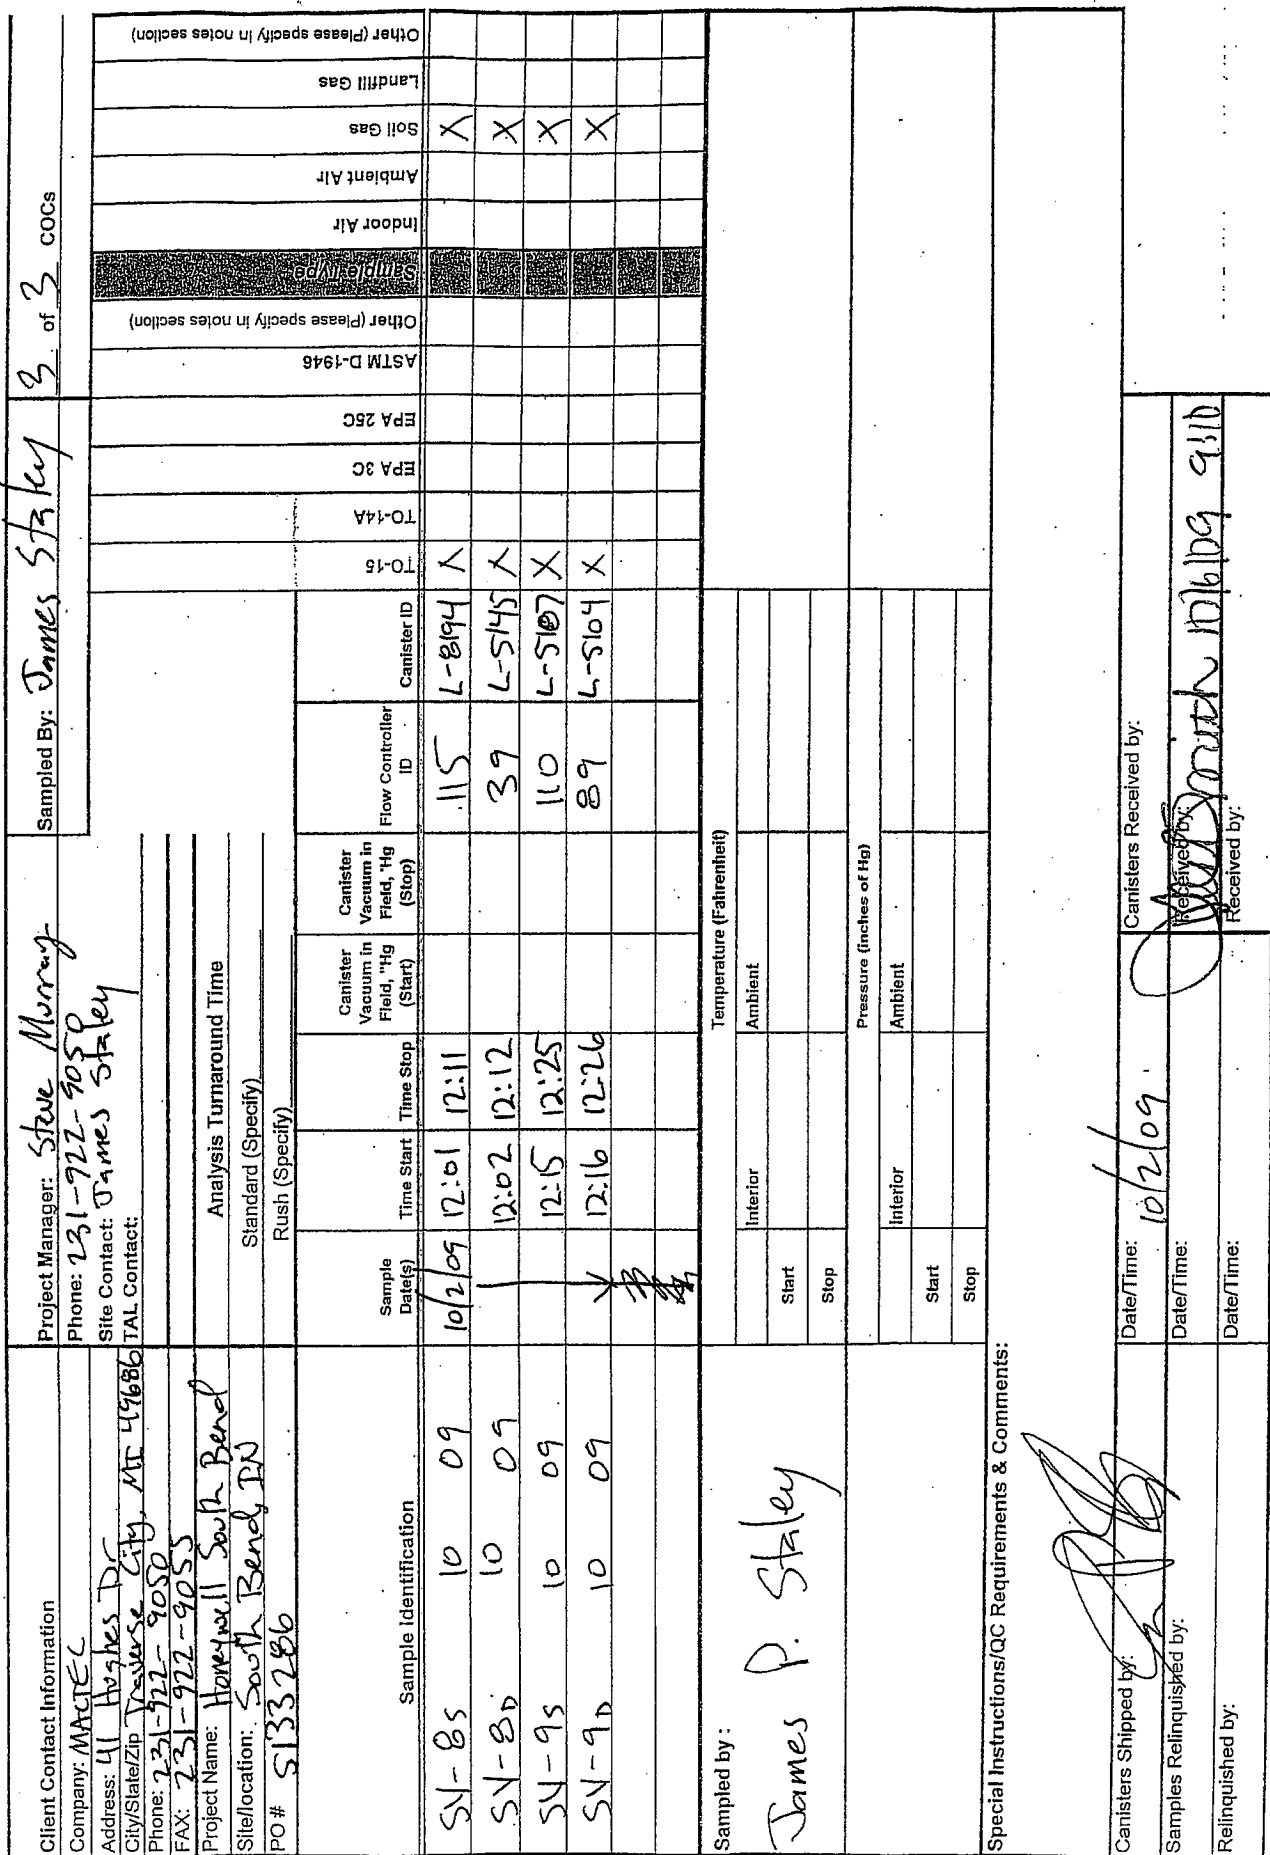 Client Contact Information
Company: MACTEC
Address: 41 Hughes Dr
City/State/Zip Traverse City, MI 49686
Phone: 231-922-9050
FAX: 231-922-9055
Project Name: Honeywell South Bend
Site/location: South Bend, IN
PO # 5133286
Project Manager: Steve Murray
Phone: 231-922-9050
Site Contact: James Staley
TAL Contact:
Analysis Turnaround Time
Standard (Specify)
Rush (Specify)
Sampled By: James Staley
3 of 3 COCs
Sample Identification
Sample Date(s)
Time Start
Time Stop
Canister Vacuum in Field, "Hg (Start)
Canister Vacuum in Field, "Hg (Stop)
Flow Controller ID
Canister ID
TO-15
TO-14A
EPA 3C
EPA 25C
ASTM D-1946
Other (Please specify in notes section)
Sample Type
Indoor Air
Ambient Air
Soil Gas
Landfill Gas
Other (Please specify in notes section)
SV-8S 10 09 10/2/09 12:01 12:11 115 L-8194 X X
SV-8D 10 09 12:02 12:12 39 L-5145 X X
SV-9S 10 09 12:15 12:25 110 L-5187 X X
SV-9D 10 09 12:16 12:26 89 L-5104 X X
Sampled by :
James P. Staley
Temperature (Fahrenheit)
Interior Ambient
Start
Stop
Pressure (inches of Hg)
Interior Ambient
Start
Stop
Special Instructions/QC Requirements & Comments:
Canisters Shipped by: Date/Time: 10/2/09 Canisters Received by:
Samples Relinquished by: Date/Time: Received by: 10/6/09 9:10
Relinquished by: Date/Time: Received by: